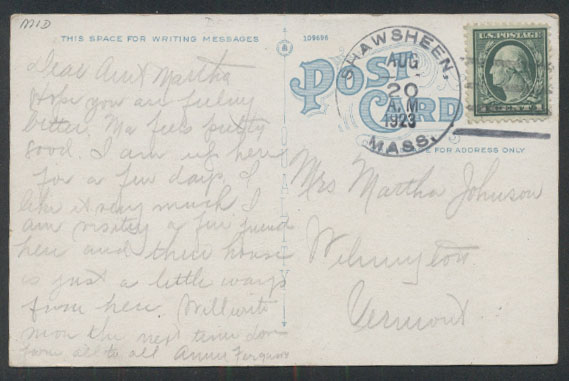 MID
THIS SPACE FOR WRITING MESSAGES
109696
POST CARD
FOR ADDRESS ONLY
SHAWSHEEN,
AUG
20
A.M
1923
MASS.
U.S. POSTAGE
Dear Aunt Martha
Hope you are feeling
better. Ma feels pretty
good. I am up here
for a few days. I
like it very much I
am visiting a friend
here and their house
is just a little ways
from here. Will write
more the next time Love
from all to all Annie Ferguson
Mrs Martha Johnson
Wilmington
Vermont